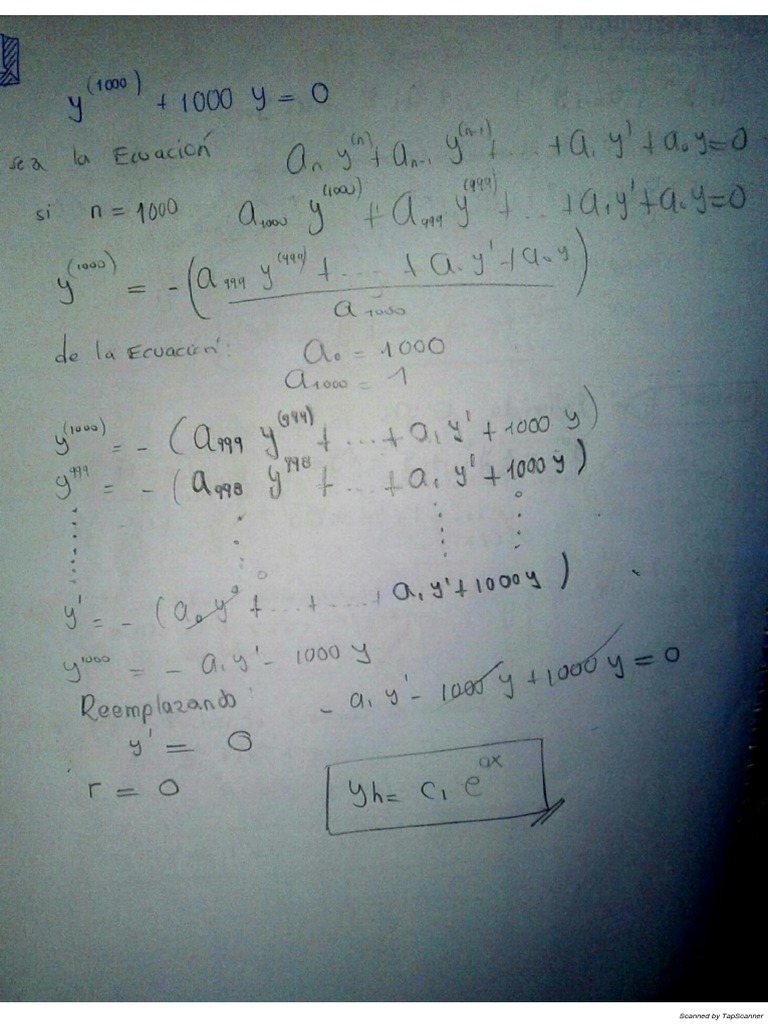 y^(1000) + 1000 y = 0
sea la Ecuación a_n y^(n) + a_n-1 y^(n-1) + ... + a_1 y' + a_0 y = 0
si n = 1000 a_1000 y^(1000) + a_999 y^(999) + ... + a_1 y' + a_0 y = 0
y^(1000) = - (a_999 y^(999) + ... + a_1 y' + a_0 y)
a_1000
de la Ecuación: a_0 = 1000
a_1000 = 1
y^(1000) = - (a_999 y^(999) + ... + a_1 y' + 1000 y)
y^999 = - (a_998 y^998 + ... + a_1 y' + 1000 y)
y' = - (a_0 y^0 + ... + ... + a_1 y' + 1000 y)
y^1000 = - a_1 y' - 1000 y
Reemplazando: - a_1 y' - 1000 y + 1000 y = 0
y' = 0
r = 0
yh = c_1 e^0x
Scanned by TapScanner